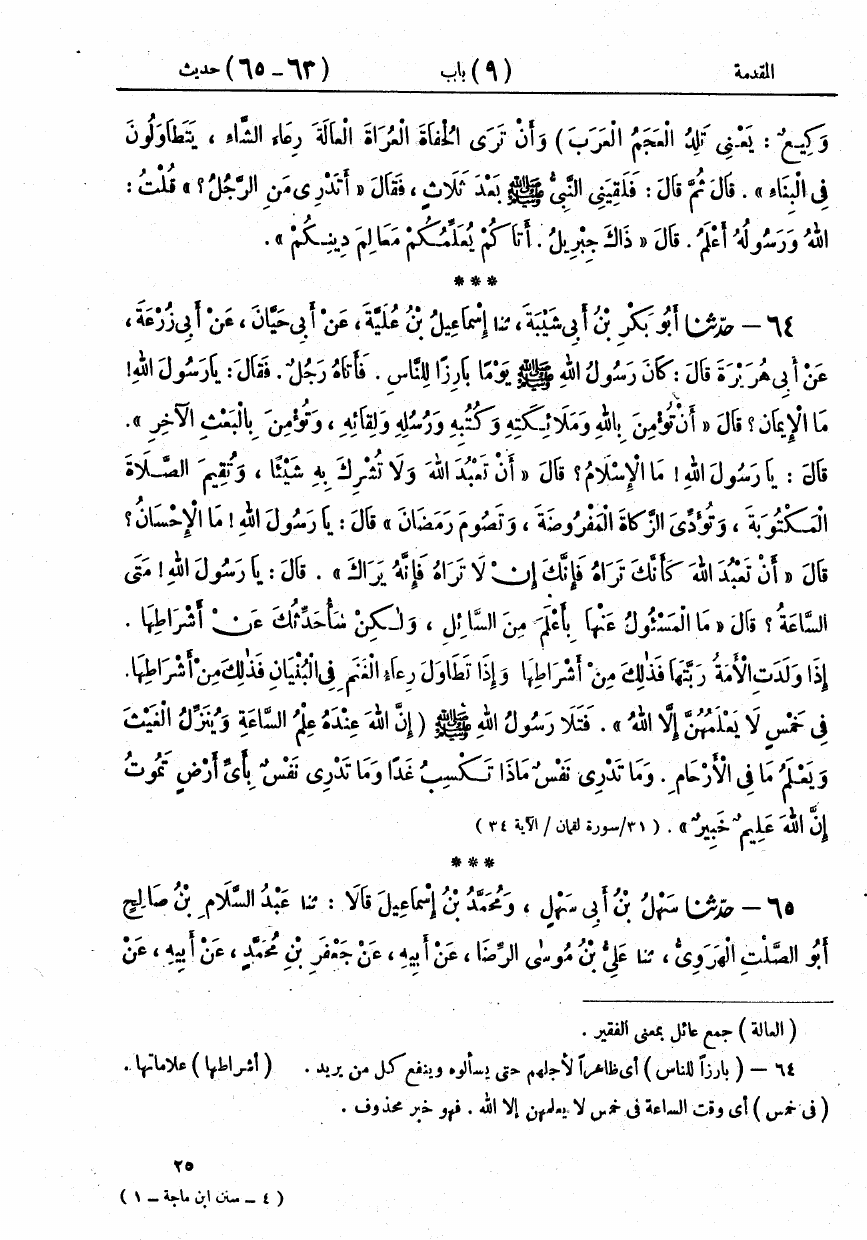 المقدمة (٩) باب (٦٣-٦٥) حديث
وَكِيعٌ : يَعْنِى تَلِدُ الْعَجَمُ الْعَرَبَ) وَأَنْ تَرَى الْحُفَاةَ الْعُرَاةَ الْعَالَةَ رِعَاءَ الشَّاءِ ، يَتَطَاوَلُونَ
فِى الْبِنَاءِ » . قَالَ ثُمَّ قَالَ : فَلَقِيَنِى النَّبِىُّ ﷺ بَعْدَ ثَلَاثٍ ، فَقَالَ « أَتَدْرِى مَنِ الرَّجُلُ؟ » قُلْتُ :
اللهُ وَرَسُولُهُ أَعْلَمُ . قَالَ « ذَاكَ جِبْرِيلُ . أَتَاكُمْ يُعَلِّمُكُمْ مَعَالِمَ دِينِكُمْ ».
***
٦٤ – حدّثنا أَبُو بَكْرِ بْنُ أَبِى شَيْبَةَ ، ثنا إِسْمَاعِيلُ بْنُ عُلَيَّةَ ، عَنْ أَبِى حَيَّانَ ، عَنْ أَبِى زُرْعَةَ ،
عَنْ أَبِى هُرَيْرَةَ قَالَ : كَانَ رَسُولُ اللهِ ﷺ يَوْمًا بَارِزًا لِلنَّاسِ . فَأَتَاهُ رَجُلٌ . فَقَالَ : يَا رَسُولَ اللهِ!
مَا الْإِيمَانُ ؟ قَالَ « أَنْ تُؤْمِنَ بِاللهِ وَمَلَائِكَتِهِ وَكُتُبِهِ وَرُسُلِهِ وَلِقَائِهِ ، وَتُؤْمِنَ بِالْبَعْثِ الْآخِرِ ».
قَالَ : يَا رَسُولَ اللهِ ! مَا الْإِسْلَامُ ؟ قَالَ « أَنْ تَعْبُدَ اللهَ وَلَا تُشْرِكَ بِهِ شَيْئًا ، وَتُقِيمَ الصَّلَاةَ
الْمَكْتُوبَةَ ، وَتُؤَدِّىَ الزَّكَاةَ الْمَفْرُوضَةَ ، وَتَصُومَ رَمَضَانَ » قَالَ : يَا رَسُولَ اللهِ ! مَا الْإِحْسَانُ ؟
قَالَ « أَنْ تَعْبُدَ اللهَ كَأَنَّكَ تَرَاهُ فَإِنَّكَ إِنْ لَا تَرَاهُ فَإِنَّهُ يَرَاكَ » . قَالَ : يَا رَسُولَ اللهِ ! مَتَى
السَّاعَةُ ؟ قَالَ « مَا الْمَسْئُولُ عَنْهَا بِأَعْلَمَ مِنَ السَّائِلِ ، وَلٰكِنْ سَأُحَدِّثُكَ عَنْ أَشْرَاطِهَا .
إِذَا وَلَدَتِ الْأَمَةُ رَبَّتَهَا فَذٰلِكَ مِنْ أَشْرَاطِهَا وَإِذَا تَطَاوَلَ رِعَاءُ الْغَنَمِ فِى الْبُنْيَانِ فَذٰلِكَ مِنْ أَشْرَاطِهَا.
فِى خَمْسٍ لَا يَعْلَمُهُنَّ إِلَّا اللهُ » . فَتَلَا رَسُولُ اللهِ ﷺ (إِنَّ اللهَ عِنْدَهُ عِلْمُ السَّاعَةِ وَيُنَزِّلُ الْغَيْثَ
وَيَعْلَمُ مَا فِى الْأَرْحَامِ . وَمَا تَدْرِى نَفْسٌ مَاذَا تَكْسِبُ غَدًا وَمَا تَدْرِى نَفْسٌ بِأَىِّ أَرْضٍ تَمُوتُ
إِنَّ اللهَ عَلِيمٌ خَبِيرٌ » . (٣١/سورة لقمان / الآية ٣٤)
***
٦٥ – حدّثنا سَهْلُ بْنُ أَبِى سَهْلٍ ، وَمُحَمَّدُ بْنُ إِسْمَاعِيلَ قَالَا : ثنا عَبْدُ السَّلَامِ بْنُ صَالِحٍ
أَبُو الصَّلْتِ الْهَرَوِىُّ ، ثنا عَلِىُّ بْنُ مُوسَى الرِّضَا ، عَنْ أَبِيهِ ، عَنْ جَعْفَرِ بْنِ مُحَمَّدٍ ، عَنْ أَبِيهِ ، عَنْ
( العالة ) جمع عائل بمعنى الفقير .
٦٤ – ( بارزاً للناس ) أى ظاهراً لأجلهم حتى يسألوه وينفع كل من يريد . ( أشراطها ) علاماتها .
( فى خمس ) أى وقت الساعة فى خمس لا يعلمهن إلا الله . فهو خبر محذوف .
٢٥
( ٤ – سنن ابن ماجة – ١ )